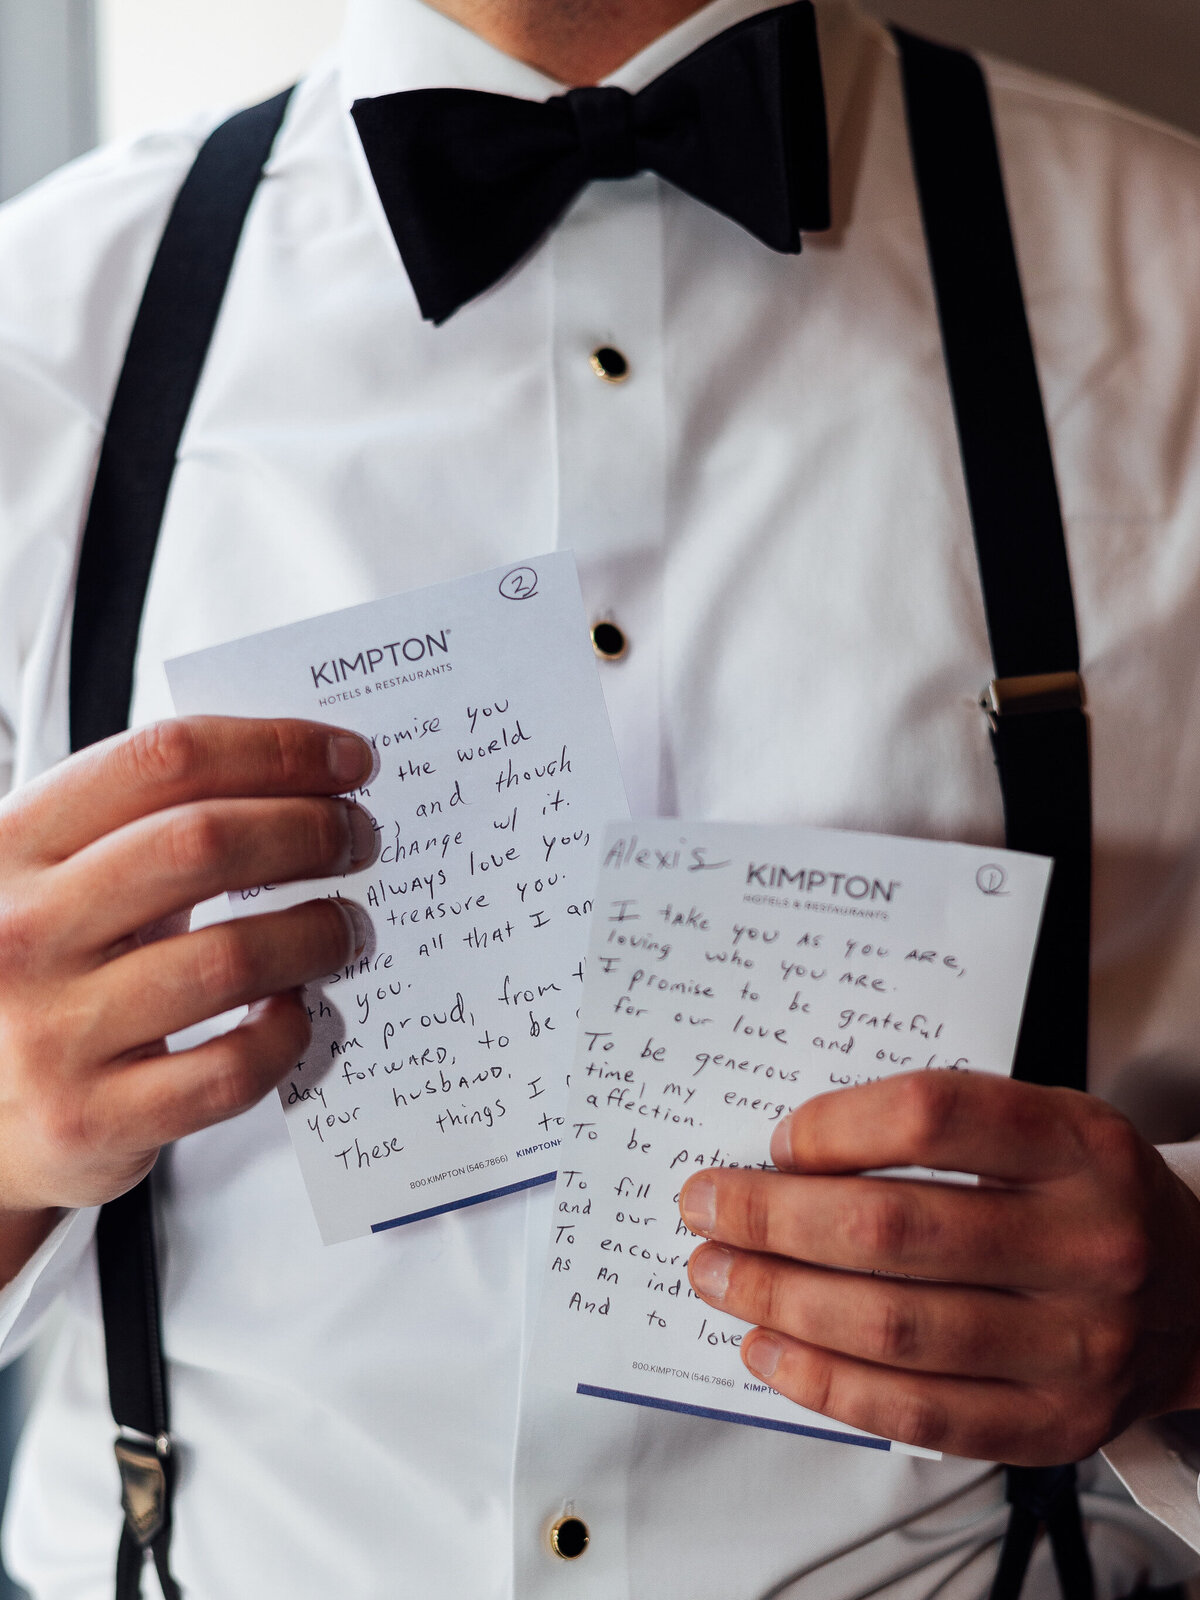 2
KIMPTON
HOTELS & RESTAURANTS
romise you
the world
, and though
change w/ it.
we
Always love you,
treasure you.
share all that I am
you.
Am proud, from
day forward, to be
your husband.
These things I
to
800.KIMPTON (546.7866) KIMPTON
Alexis
1
KIMPTON
HOTELS & RESTAURANTS
I take you as you are,
loving who you are.
I promise to be grateful
for our love and our life
To be generous with
time, my energy
affection.
To be patient
To fill
and our
To encour
As An indi
And to love
800.KIMPTON (546.7866) KIMPTO